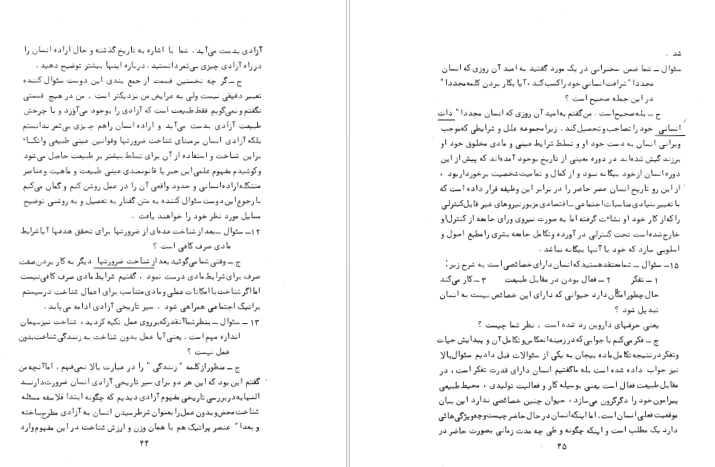 شد .
سؤال ــ شما ضمن سخنرانی در یک مورد گفتید به امید آن روزی که انسان
مجددا" شرافت انسانی خود را کسب کند ، آیا بکار بردن کلمه مجددا"
در این جمله صحیح است ؟
ج ــ بله صحیح است . من گفتم به امید آن روزی که انسان مجددا" ذات
انسانی خود را تصاحب و تحصیل کند . زیرا مجموعه علل و شرایطی که موجب
ویرانی انسان به دست خود او و تسلط شرایط عینی و مادی مخلوق خود او
برزندگیش شده‌اند در دوره معینی از تاریخ بوجود آمده‌اند که پیش از این
دوره انسان از خود بیگانه نبود و از کمال و تمامیت شخصیت برخوردار بود ،
از این رو تاریخ انسان عصر حاضر را در برابر این وظیفه قرار داده است که
با تغییر بنیادی مناسبات اجتماعی ــ اقتصادی مزبور نیروهای غیر قابل کنترلی
را که از کار خود او نشاءت گرفته اما به صورت نیروی ورای جامعه از کنترل او
خارج شده است تحت کنترلی درآورده و تکامل جامعه بشری را مطیع اصول و
اسلوبی سازد که خود با آنها بیگانه نباشد .
۱۵ــ سؤال ــ شما معتقد هستید که انسان دارای خصائصی است به شرح زیر :
۱ ــ تفکر ۲ ــ فعال بودن در مقابل طبیعت ۳ ــ کار می‌کند
حال چطور امکان دارد حیوانی که دارای این خصائص نیست به انسان
تبدیل شود ؟
یعنی حرفهای داروین رد شده است . نظر شما چیست ؟
ج ــ فکر می‌کنم با جوابی که در زمینه انعکاس و تکامل آن و پیدایش حیات
و تفکر در نتیجه تکامل ماده بیجان به یکی از سؤالات قبل دادیم سؤال بالا
نیز جواب داده شده است بله ما گفتیم انسان دارای قدرت تفکر است ، در
مقابل طبیعت فعال است یعنی بوسیله کار و فعالیت تولیدی ، محیط طبیعی
پیرامون خود را دگرگون می‌سازد ، حیوان چنین خصائصی ندارد این بیان
موقعیت فعلی انسان است . اما اینکه انسان در حال حاضر چیست و چه ویژگی‌هائی
دارد یک مطلب است و اینکه چگونه و طی چه مدت زمانی بصورت حاضر در
۴۵
آزادی بدست می‌آید ، شما با اشاره به تاریخ گذشته و حال اراده انسان را
در راه آزادی چیزی بی‌ثمر دانستید . درباره اینها بیشتر توضیح دهید .
ج ــ گر چه نخستین قسمت از جمع بندی این دوست سؤال کننده
تعبیر دقیقی نیست ولی به عرایض من نزدیکتر است . من در هیچ قسمتی
نگفتم و نمی‌گویم فقط طبیعت است که آزادی را بوجود می‌آورد و با چرخش
طبیعت آزادی بدست می‌آید و اراده انسان را هم چیزی بی‌ثمر ندانستم
بلکه آزادی انسان بر مبنای شناخت ضرورتها و قوانین عینی طبیعی و اتکاء
بر این شناخت و استفاده از آن برای تسلط بیشتر بر طبیعت حاصل می‌شود
و کوشیدم مفهوم علمی این جبر یا قانونمندی عینی طبیعت و ماهیت و عناصر
متشکله اراده انسانی و حدود واقعی آن را در عمل روشن کنم و گمان می‌کنم
با رجوع این دوست سؤال کننده به متن گفتار به تفصیل و به روشنی توضیح
مسایل مورد نظر خود را خواهند یافت .
۱۲ــ سؤال ــ بعد از شناخت عده‌ای از ضرورتها برای تحقق هدفها آیا شرایط
مادی صرف کافی است ؟
ج ــ وقتی شما می‌گوئید بعد از شناخت ضرورتها دیگر به کار بردن صفت
صرف برای شرایط مادی درست نبود . گفتیم شرایط مادی صرف کافی نیست
اما اگر شناخت با امکانات عملی و مادی متناسب برای اعمال شناخت در سیستم
پراتیک اجتماعی همراهی شود . سیر تاریخی آزادی ادامه می‌یابد .
۱۳ ــ سؤال ــ بنظر شما آنقدر که بر روی عمل تکیه کردید ، شناخت نیز بهمان
اندازه مهم است . یعنی آیا عمل بدون شناخت به زندگی شناخت بدون
عمل نیست ؟
ج ــ منظور از کلمه " زندگی " را در عبارت بالا نمی‌فهم . اما آنچه من
گفتم این بود که این هر دو برای سیر تاریخی آزادی انسان ضرورت دارند
النهایه در بررسی تاریخی مفهوم آزادی دیدیم که چگونه ابتدا فلاسفه مسئله
شناخت محض و بدون عمل را بعنوان شرط رسیدن انسان به آزادی مطرح ساخته
و بعدا" عنصر پراتیک هم با همان وزن و ارزش شناخت در این مفهوم وارد
۴۴